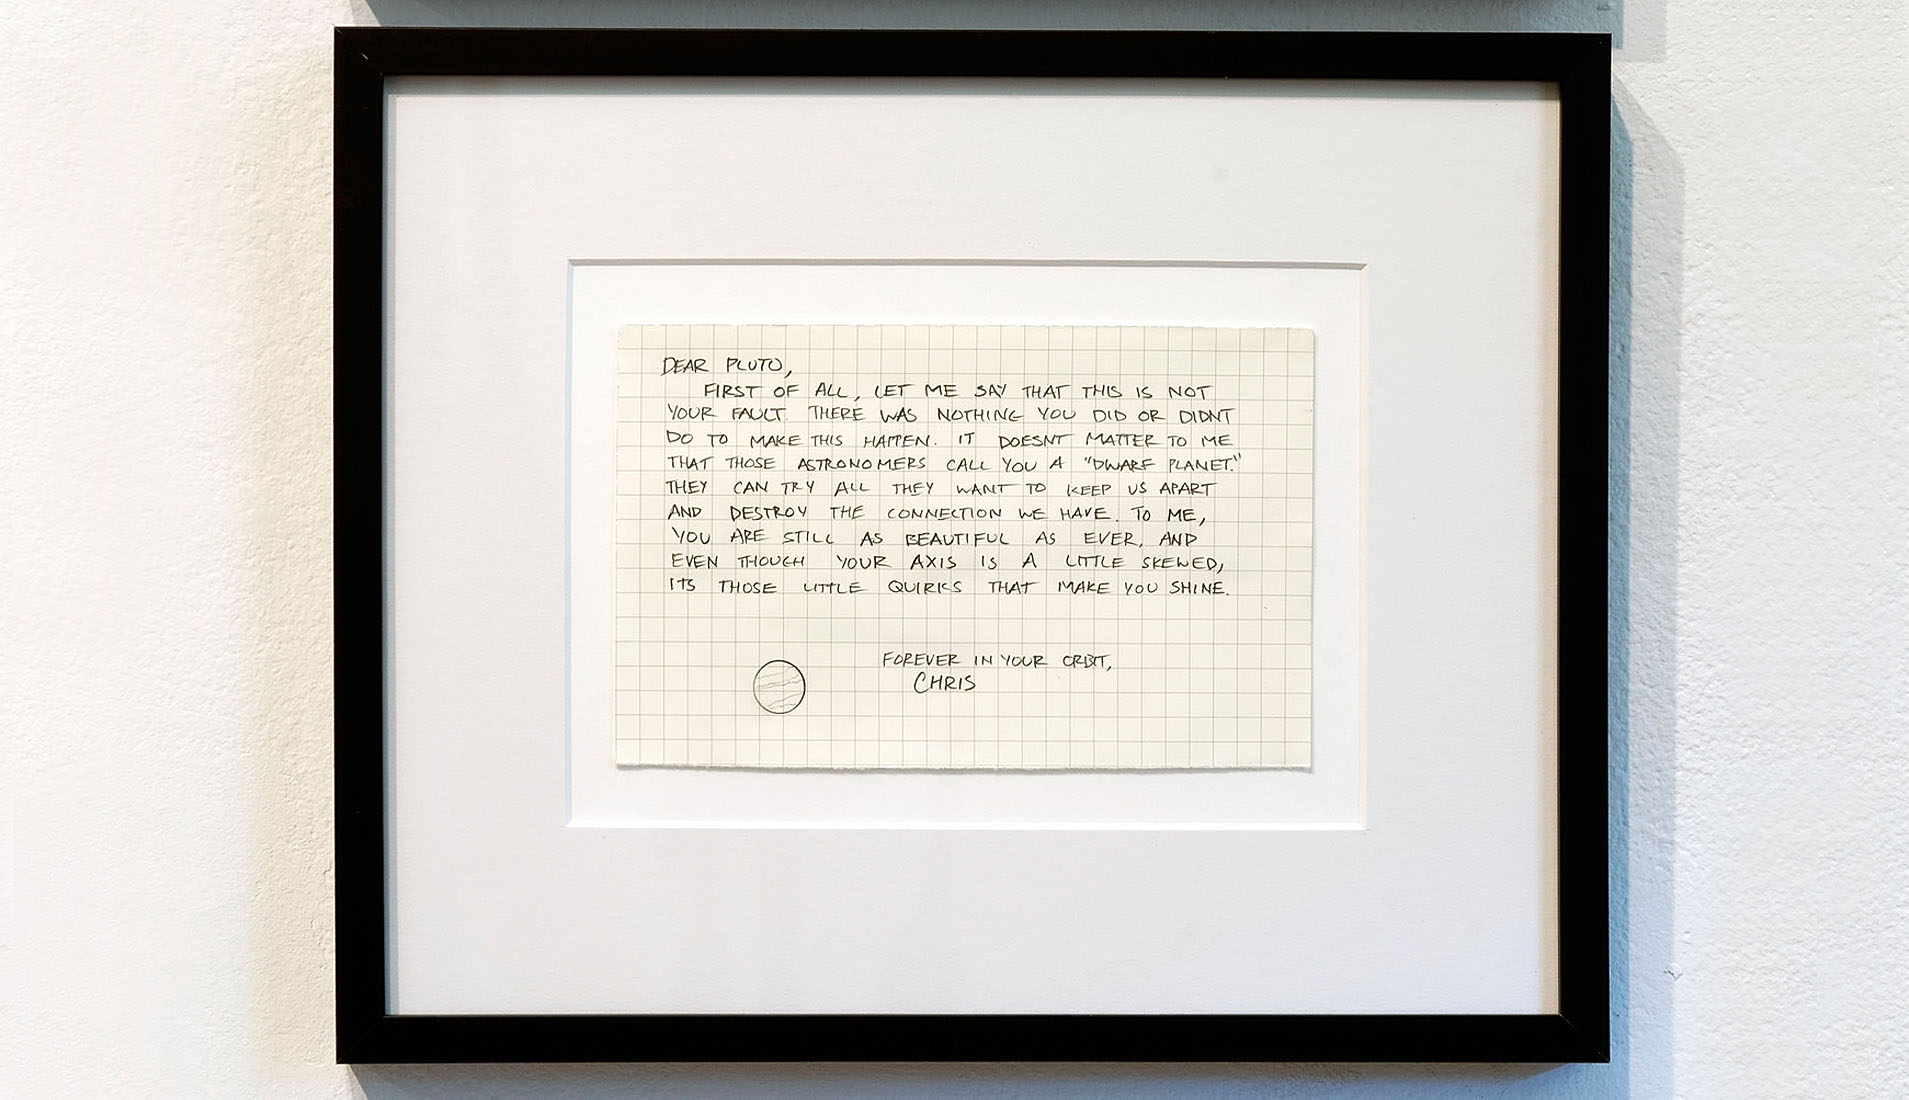 DEAR PLUTO,
FIRST OF ALL, LET ME SAY THAT THIS IS NOT
YOUR FAULT. THERE WAS NOTHING YOU DID OR DIDNT
DO TO MAKE THIS HAPPEN. IT DOESNT MATTER TO ME
THAT THOSE ASTRONOMERS CALL YOU A "DWARF PLANET."
THEY CAN TRY ALL THEY WANT TO KEEP US APART
AND DESTROY THE CONNECTION WE HAVE. TO ME,
YOU ARE STILL AS BEAUTIFUL AS EVER, AND
EVEN THOUGH YOUR AXIS IS A LITTLE SKEWED,
ITS THOSE LITTLE QUIRKS THAT MAKE YOU SHINE.
FOREVER IN YOUR ORBIT,
CHRIS